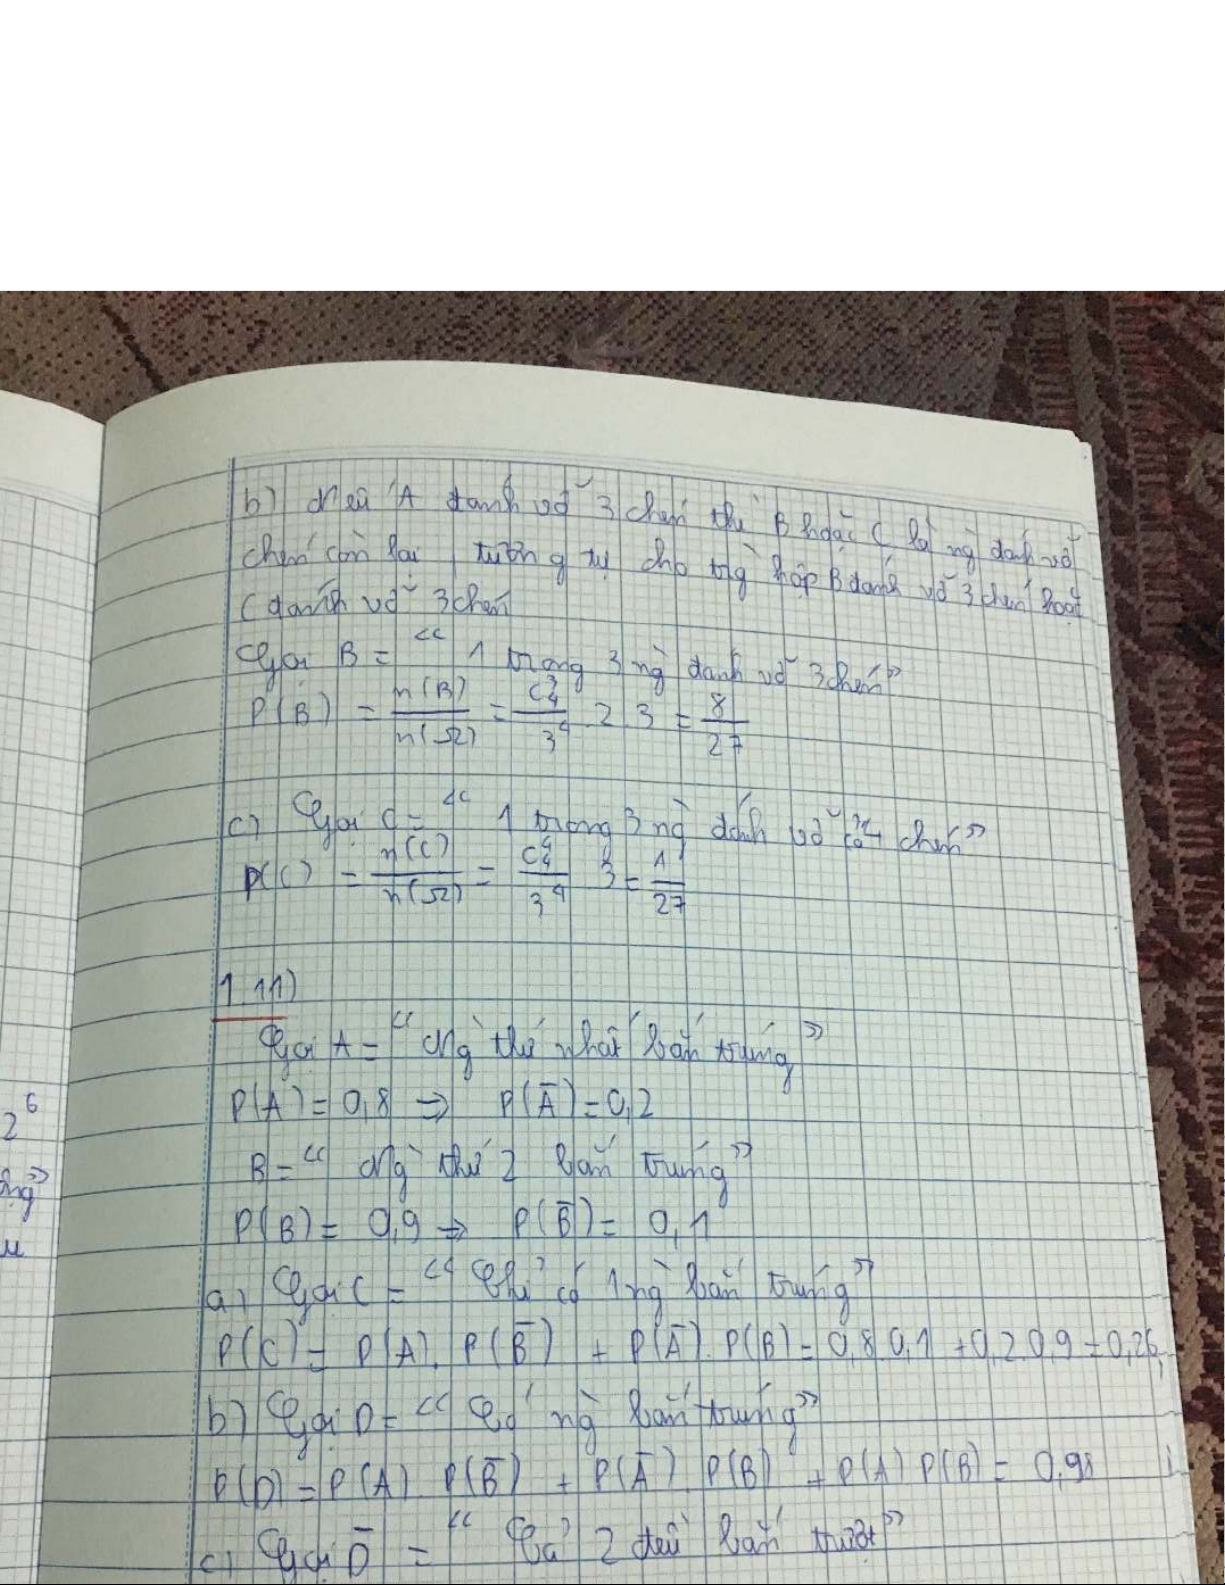 b) Nếu A đánh vỡ 3 chén thì B hoặc C là ng đánh vỡ
chén còn lại, tương tự cho trg hợp B đánh vỡ 3 chén hoặc
C đánh vỡ 3 chén
Gọi B = " 1 trong 3 ng đánh vỡ 3 chén"
P(B) = n(B)/n(Ω) = C³₄/3⁴ . 2 . 3 = 8/27
c) Gọi C = " 1 trong 3 ng đánh vỡ cả 4 chén"
P(C) = n(C)/n(Ω) = C⁴₄/3⁴ . 3 = 1/27
1.11)
Gọi A = " Ng thứ nhất bắn trúng "
P(A) = 0,8 ⇒ P(A̅) = 0,2
B = " Ng thứ 2 bắn trúng "
P(B) = 0,9 ⇒ P(B̅) = 0,1
a) Gọi C = " Chỉ có 1 ng bắn trúng "
P(C) = P(A). P(B̅) + P(A̅). P(B) = 0,8.0,1 + 0,2.0,9 = 0,26
b) Gọi D = " Có ng bắn trúng "
P(D) = P(A). P(B̅) + P(A̅). P(B) + P(A) P(B) = 0,98
c) Gọi D̅ = " Cả 2 đều bắn trượt "
2⁶